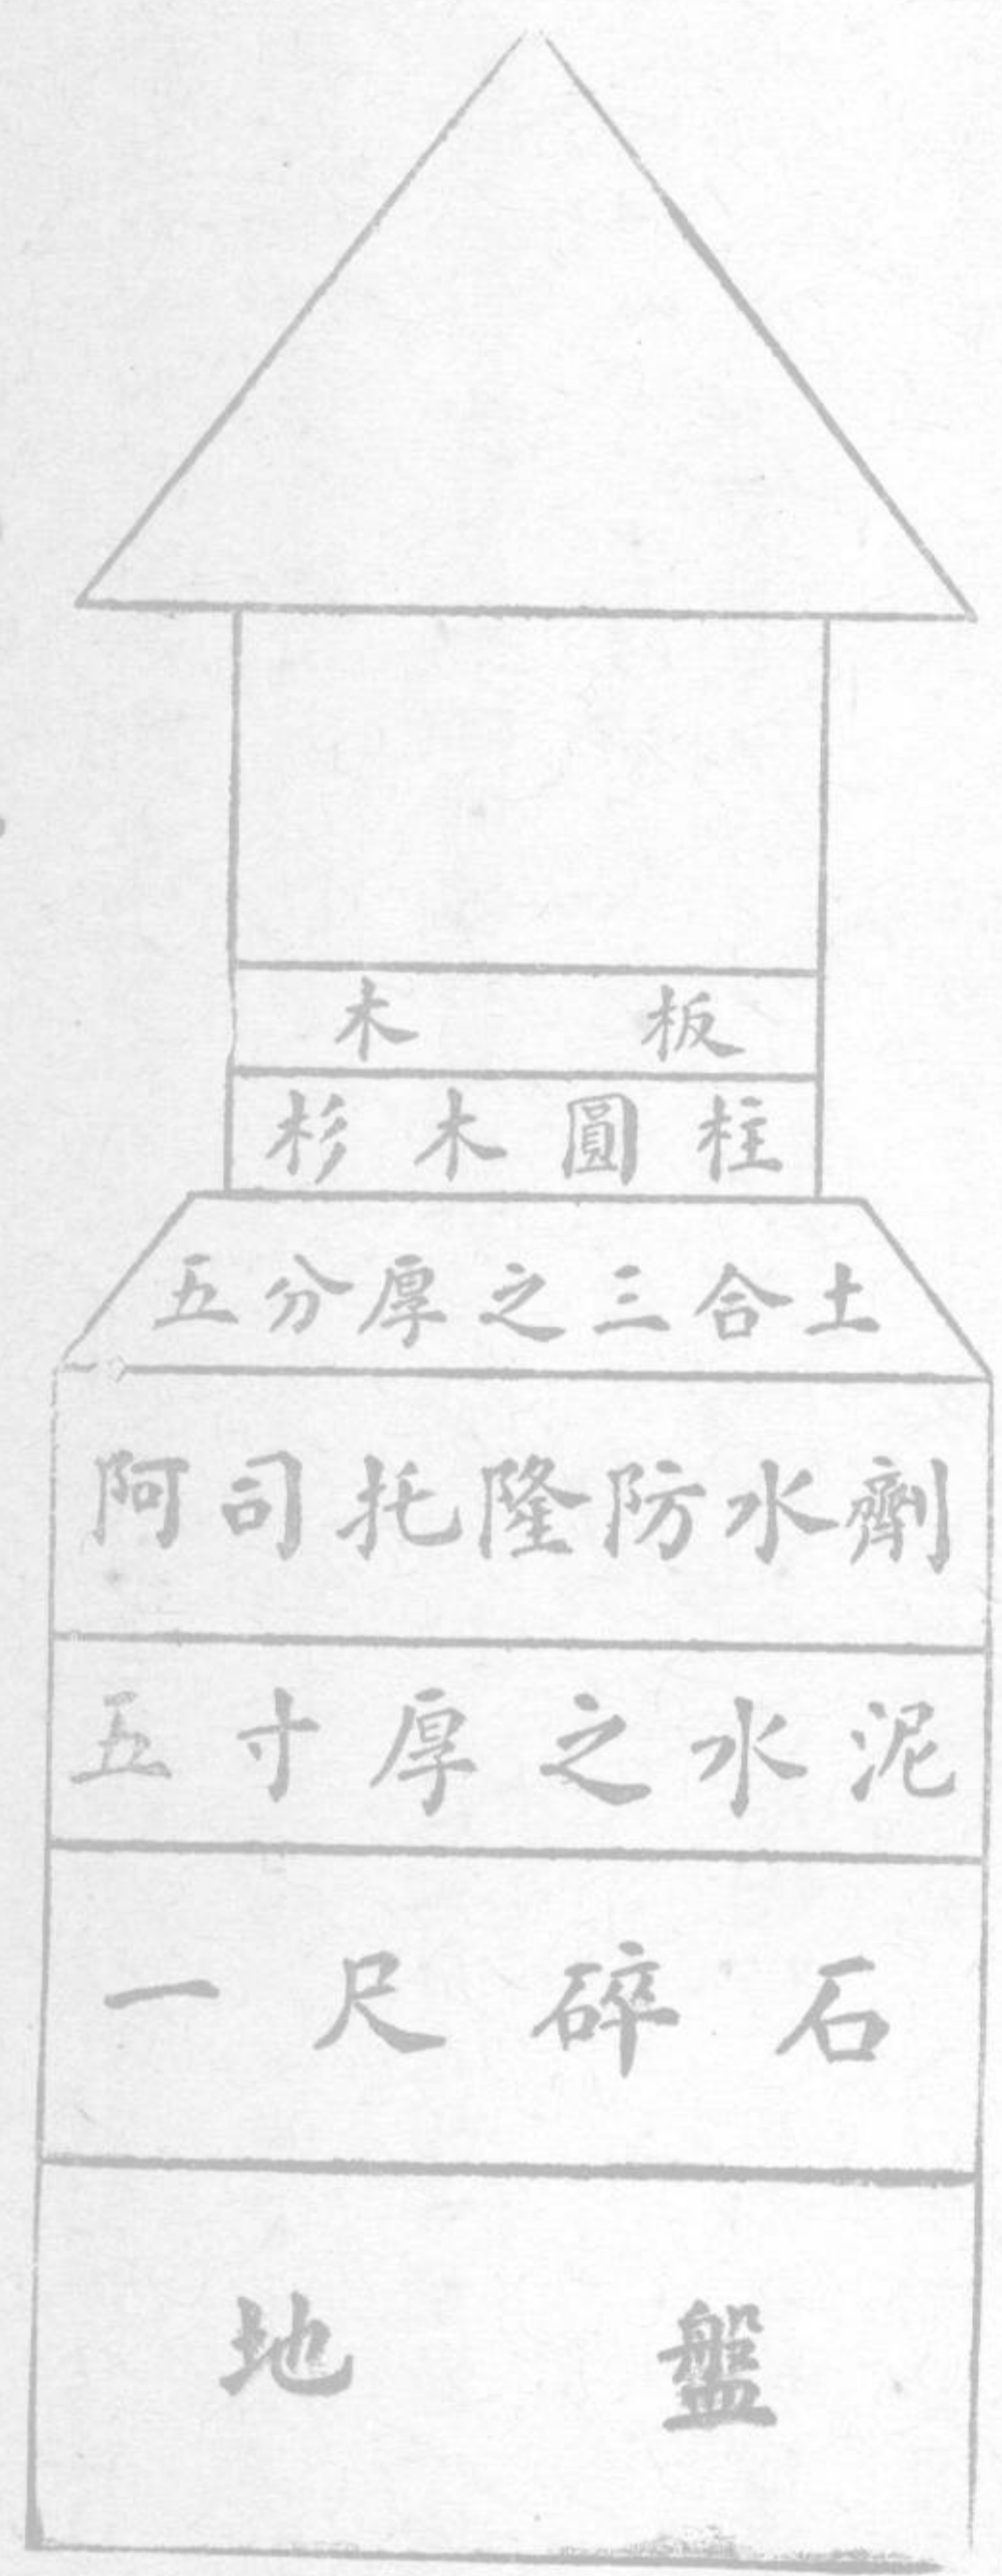 木板
杉木圓柱
五分厚之三合土
阿司托隆防水劑
五寸厚之水泥
一尺碎石
地盤